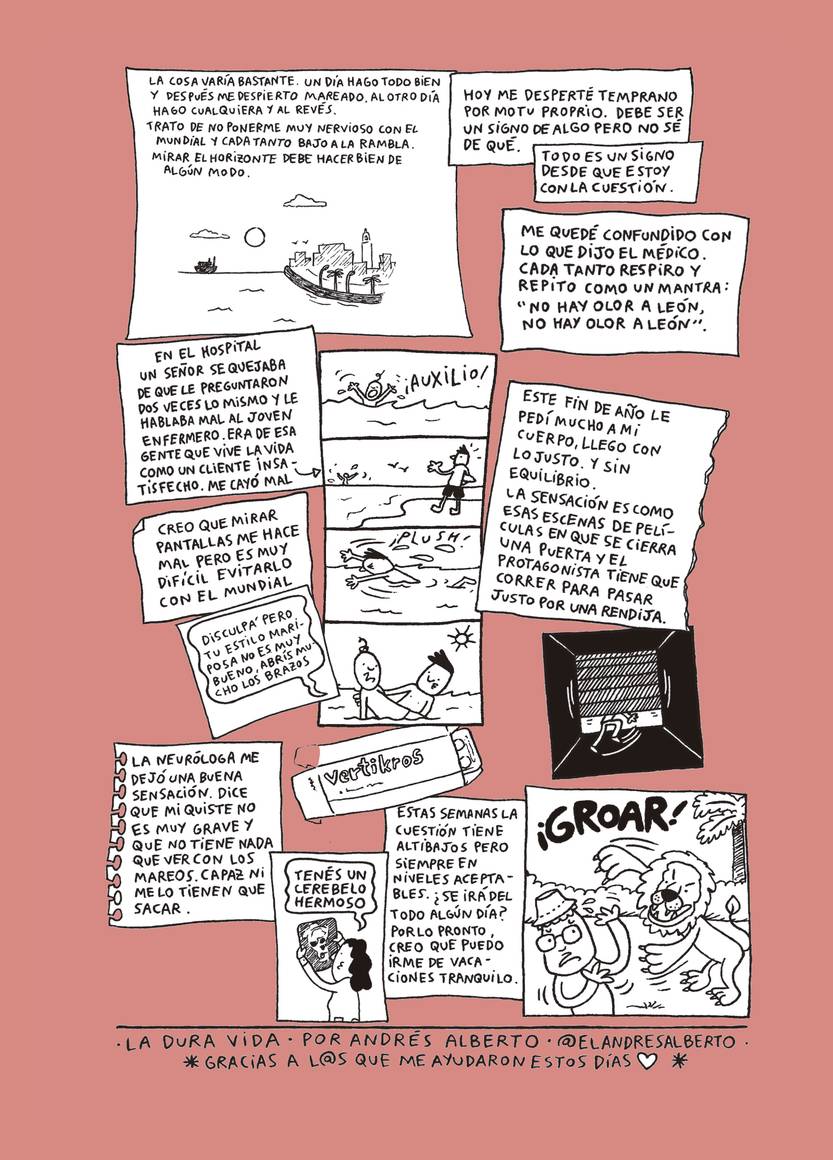 LA COSA VARÍA BASTANTE. UN DÍA HAGO TODO BIEN
Y DESPUÉS ME DESPIERTO MAREADO. AL OTRO DÍA
HAGO CUALQUIERA Y AL REVÉS.
TRATO DE NO PONERME MUY NERVIOSO CON EL
MUNDIAL Y CADA TANTO BAJO A LA RAMBLA.
MIRAR EL HORIZONTE DEBE HACER BIEN DE
ALGÚN MODO.
HOY ME DESPERTÉ TEMPRANO
POR MOTU PROPRIO. DEBE SER
UN SIGNO DE ALGO PERO NO SÉ
DE QUÉ.
TODO ES UN SIGNO
DESDE QUE ESTOY
CON LA CUESTIÓN.
ME QUEDÉ CONFUNDIDO CON
LO QUE DIJO EL MÉDICO.
CADA TANTO RESPIRO Y
REPITO COMO UN MANTRA:
"NO HAY OLOR A LEÓN,
NO HAY OLOR A LEÓN".
EN EL HOSPITAL
UN SEÑOR SE QUEJABA
DE QUE LE PREGUNTARON
DOS VECES LO MISMO Y LE
HABLABA MAL AL JOVEN
ENFERMERO. ERA DE ESA
GENTE QUE VIVE LA VIDA
COMO UN CLIENTE INSA-
TISFECHO. ME CAYÓ MAL
¡AUXILIO!
¡PLUSH!
DISCULPÁ PERO
TU ESTILO MARI-
POSA NO ES MUY
BUENO, ABRÍS MU-
CHO LOS BRAZOS
CREO QUE MIRAR
PANTALLAS ME HACE
MAL PERO ES MUY
DIFÍCIL EVITARLO
CON EL MUNDIAL
ESTE FIN DE AÑO LE
PEDÍ MUCHO A MI
CUERPO, LLEGO CON
LO JUSTO. Y SIN
EQUILIBRIO.
LA SENSACIÓN ES COMO
ESAS ESCENAS DE PELÍ-
CULAS EN QUE SE CIERRA
UNA PUERTA Y EL
PROTAGONISTA TIENE QUE
CORRER PARA PASAR
JUSTO POR UNA RENDIJA.
LA NEURÓLOGA ME
DEJÓ UNA BUENA
SENSACIÓN. DICE
QUE MI QUISTE NO
ES MUY GRAVE Y
QUE NO TIENE NADA
QUE VER CON LOS
MAREOS. CAPAZ NI
ME LO TIENEN QUE
SACAR.
vertikros
TENÉS UN
CEREBELO
HERMOSO
ESTAS SEMANAS LA
CUESTIÓN TIENE
ALTIBAJOS PERO
SIEMPRE EN
NIVELES ACEPTA-
BLES. ¿SE IRÁ DEL
TODO ALGÚN DÍA?
POR LO PRONTO,
CREO QUE PUEDO
IRME DE VACA-
CIONES TRANQUILO.
¡GROAR!
·LA DURA VIDA · POR ANDRÉS ALBERTO · @ELANDRESALBERTO ·
* GRACIAS A L@S QUE ME AYUDARON ESTOS DÍAS ♡ *